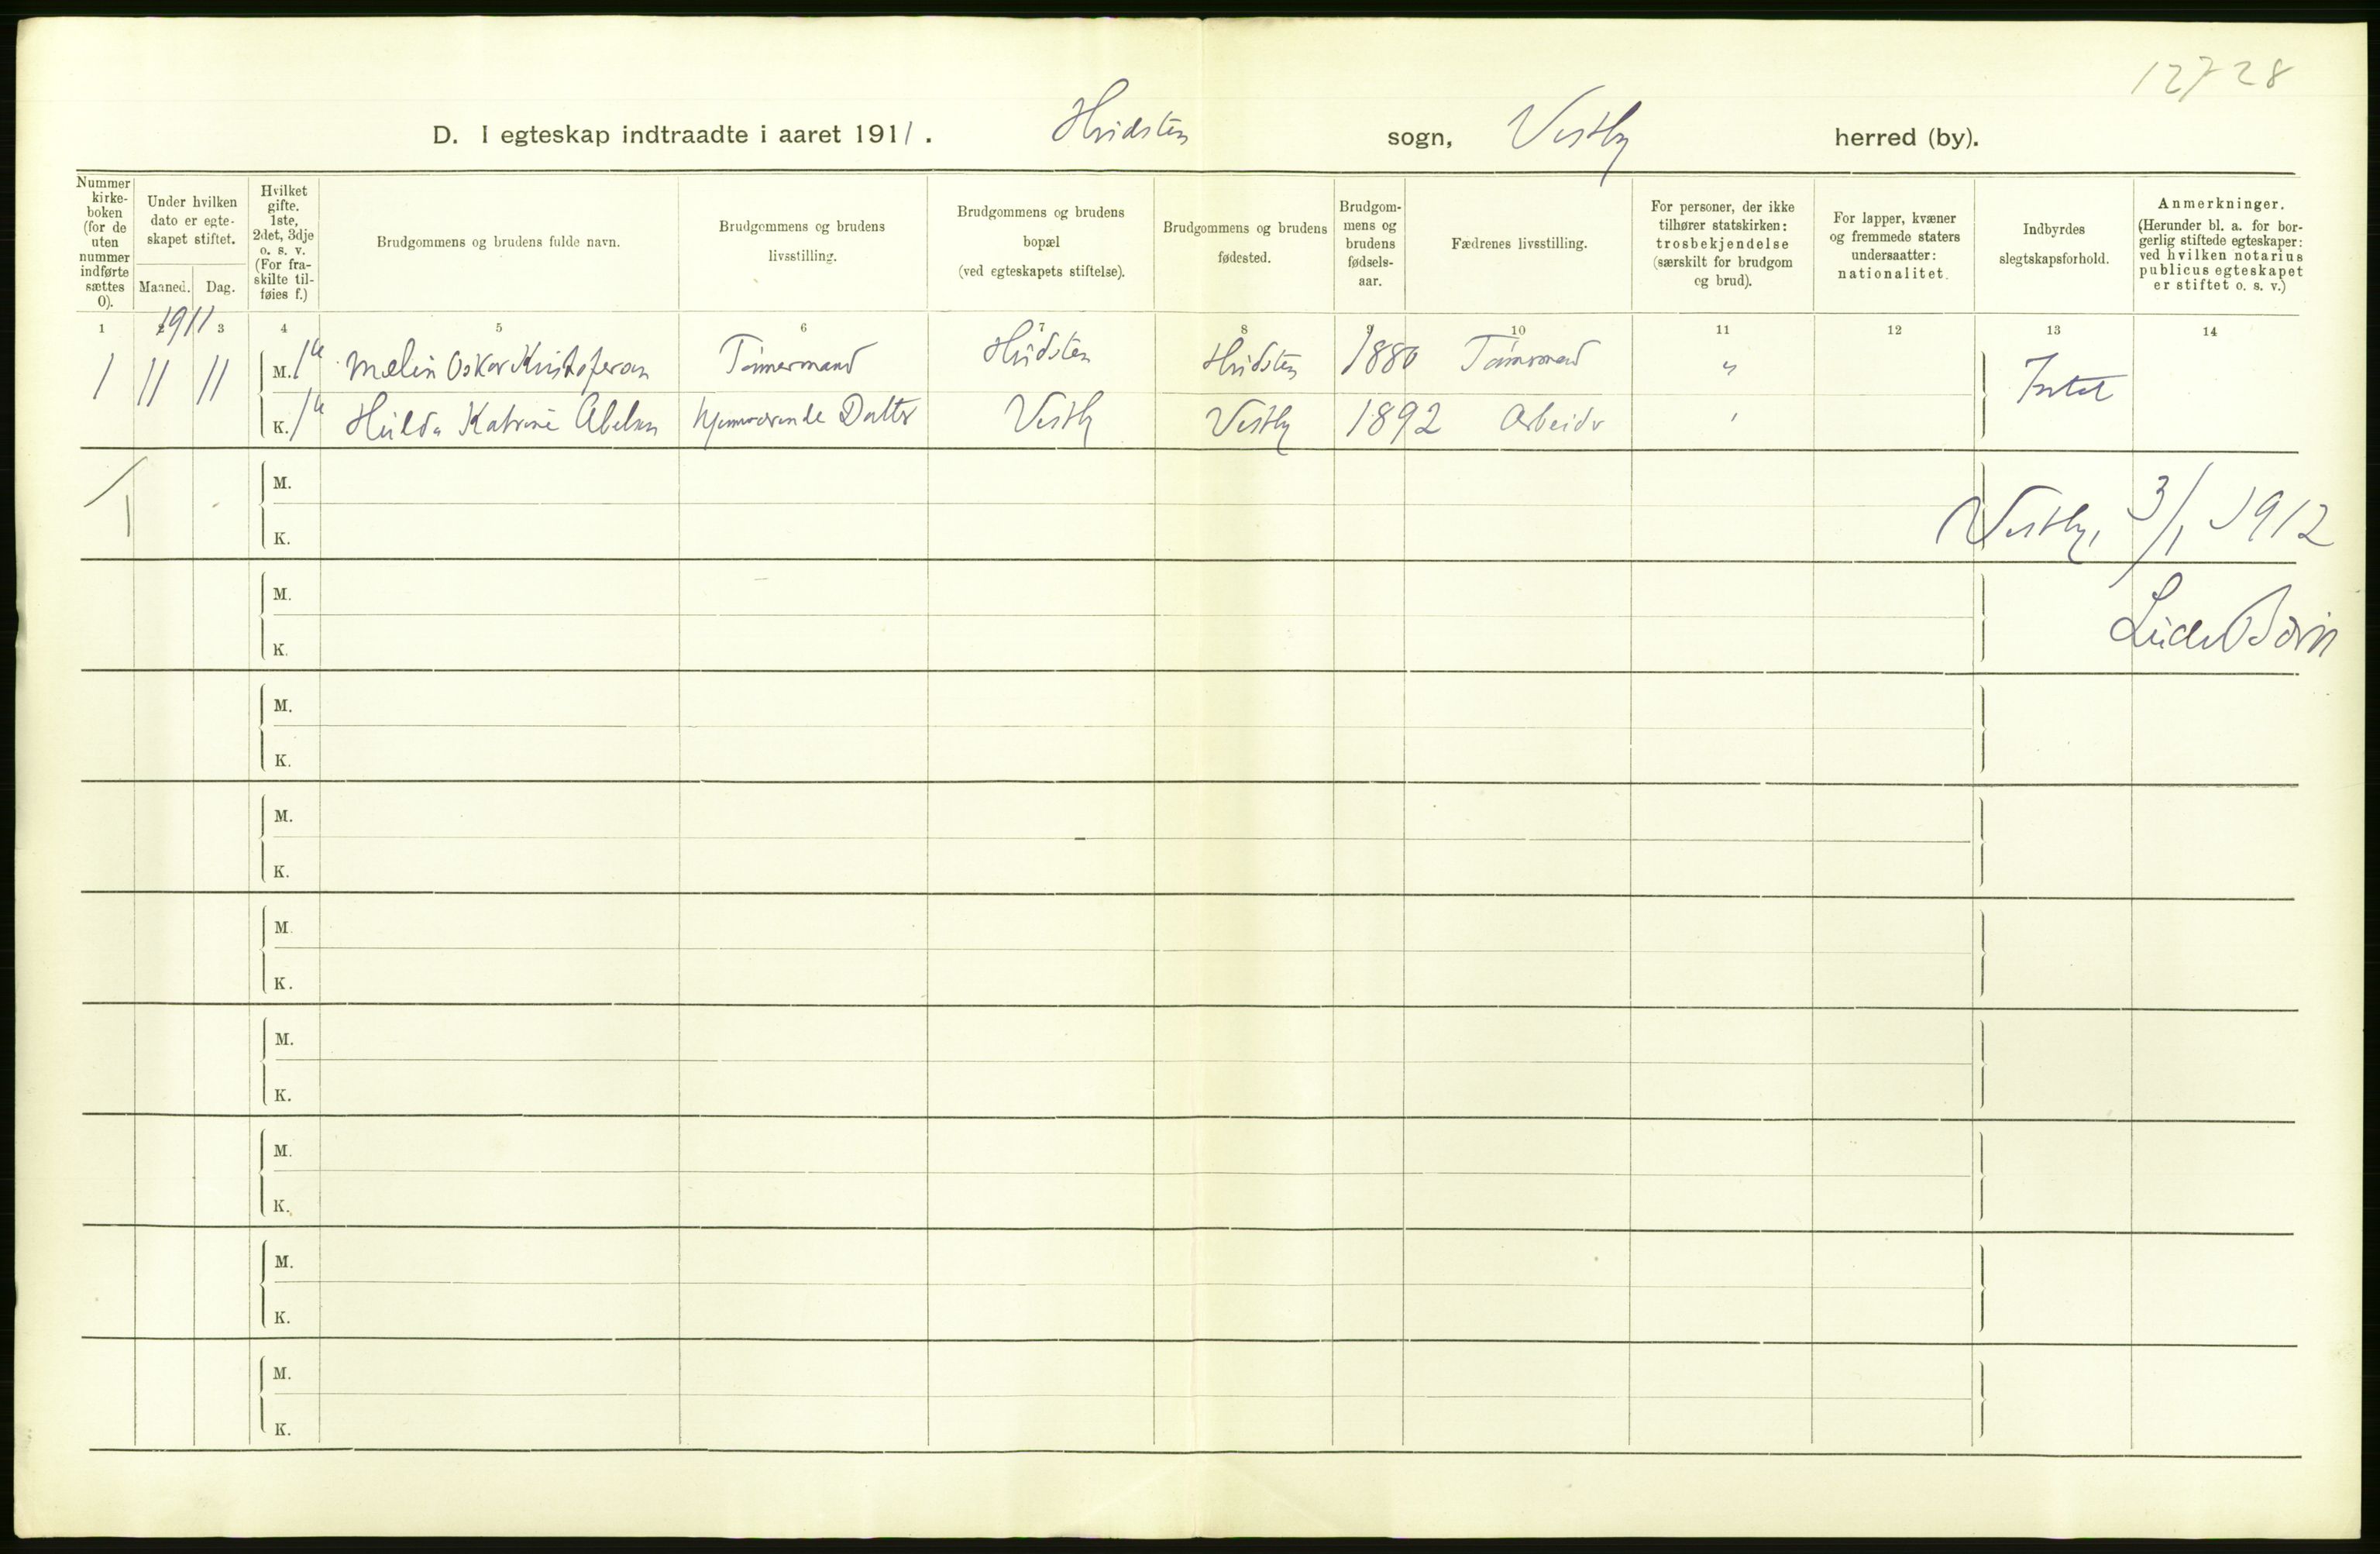 12728
D. I egteskap indtraadte i aaret 1911. Hvidsten sogn, Vestby herred (by).
Nummer kirke-
boken
(for de
uten
nummer
indførte
sættes
0).
Under hvilken
dato er egte-
skapet stiftet.
Maaned. Dag.
Hvilket
gifte.
1ste,
2det, 3dje
o. s. v.
(For fra-
skilte til-
føies f.)
Brudgommens og brudens fulde navn.
Brudgommens og brudens
livsstilling.
Brudgommens og brudens
bopæl
(ved egteskapets stiftelse).
Brudgommens og brudens
fødested.
Brudgom-
mens og
brudens
fødsels-
aar.
Fædrenes livsstilling.
For personer, der ikke
tilhører statskirken:
trosbekjendelse
(særskilt for brudgom
og brud).
For lapper, kvæner
og fremmede staters
undersaatter:
nationalitet.
Indbyrdes
slegtskapsforhold.
Anmerkninger.
(Herunder bl. a. for bor-
gerlig stiftede egteskaper:
ved hvilken notarius
publicus egteskapet
er stiftet o. s. v.)
1 2 3 4 5 6 7 8 9 10 11 12 13 14
1911
1 11 11 M. 1ste Melin Oskar Kristofersen Tømmermand Hvidsten Hvidsten 1880 Tømmermand " Intet
K. 1ste Hulda Katrine Abelsen Hjemmeværende Datter Vestby Vestby 1892 Arbeider "
M.
K.
Vestby, 3/1 1912
M.
K.
M.
K.
M.
K.
M.
K.
M.
K.
M.
K.
M.
K.
M.
K.